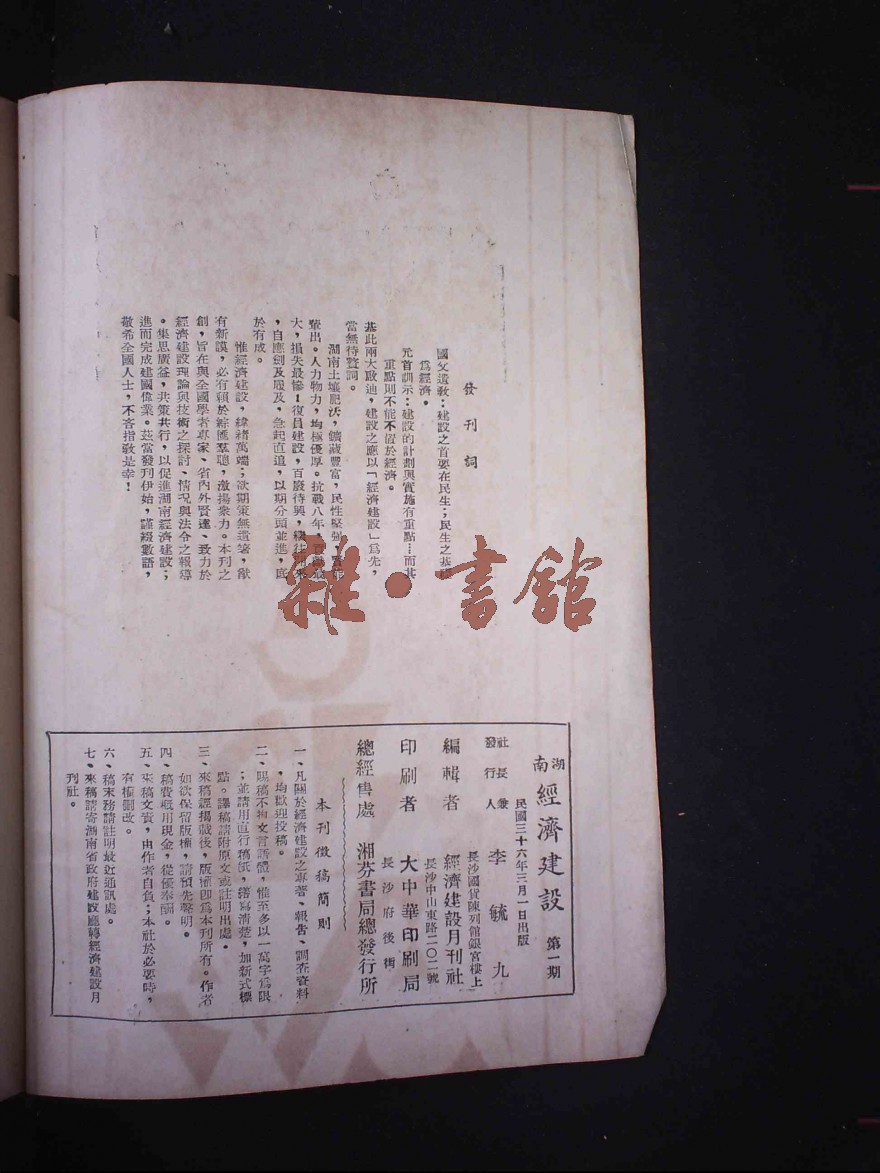 發刊詞
國父遺敎：建設之首要在民生；民生之基
爲經濟。
元首訓示：建設的計劃與實施有重點…而其
重點則不能不置於經濟。
基此兩大啟迪，建設之應以「經濟建設」爲先，
當無待贅詞。
湖南土壤肥沃，鑛藏豐富，民性堅
輩出。人力物力，均極優厚。抗戰八年
大，損失最慘！復員建設，百廢待興，
，自應劍及履及，急起直追，以期分頭並進，庶
於有成。
惟經濟建設，緯緖萬端；欲期策無遺
有新謨，必有賴於綜匯羣聰，激揚衆力。本刊之
創，旨在與全國學者專家、省內外賢達、致力於
經濟建設理論與技術之探討、情況與法令之報導
。集思廣益，共策共行，以促進湖南經濟建設；
進而完成建國偉業。茲當發刊伊始，謹綴數語，
敬希全國人士，不吝指敎是幸！
雜·書舘
湖南經濟建設 第一期
民國三十六年三月一日出版
社長兼發行人 李毓九
長沙國貨陳列館銀宮樓上
編輯者 經濟建設月刊社
長沙中山東路二〇二號
印刷者 大中華印刷局
長沙府後街
總經售處 湘芬書局總發行所
本刊徵稿簡則
一、凡關於經濟建設之專著、報告、調查資料
，均歡迎投稿。
二、賜稿不拘文言語體，惟至多以一萬字爲限
；並請用直行稿紙，繕寫清楚，加新式標
點。譯稿請附原文或註明出處。
三、來稿經揭載後，版權卽爲本刊所有。作者
如欲保留版權，請預先聲明。
四、稿費概用現金，從優奉酬。
五、來稿文責，由作者自負；本社於必要時，
有權刪改。
六、稿末務請註明最近通訊處。
七、來稿請寄湖南省政府建設廳轉經濟建設月
刊社。